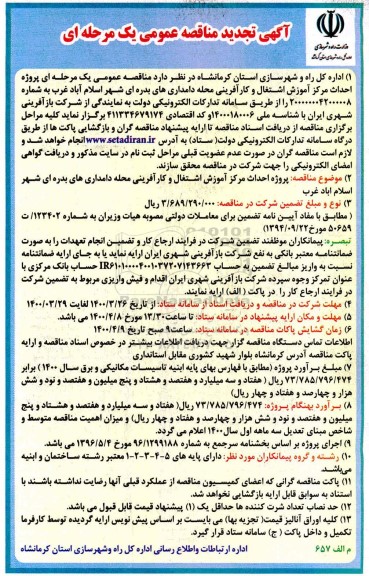 وزارت راه و شهرسازی
آگهی تجدید مناقصه عمومی یک مرحله ای
۱) اداره کل راه و شهرسازی استان کرمانشاه در نظر دارد مناقصه عمومی یک مرحله ای پروژه
احداث مرکز آموزش اشتغال و کارآفرینی محله دامداری های بدره ای شهر اسلام آباد غرب به شماره
را از طریق سامانه تدارکات الکترونیکی دولت به نمایندگی از شرکت بازآفرینی
شهری ایران با شناسه ملی و کد اقتصادی ۴۱۱۳۳۴۶۷۹۱۷۴ برگزار نماید کلیه مراحل
برگزاری مناقصه از دریافت اسناد مناقصه تا ارایه پیشنهاد مناقصه گران و بازگشایی پاکت ها از طریق
درگاه سامانه تدارکات الکترونیکی دولت( ستاد) به آدرس www.setadiran.ir انجام خواهد شد و
لازم است مناقصه گران در صورت عدم عضویت قبلی مراحل ثبت نام در سایت مذکور و دریافت گواهی
امضای الکترونیکی را جهت شرکت در مناقصه محقق سازند.
۲) موضوع مناقصه: پروژه احداث مرکز آموزش اشتغال و کارآفرینی محله دامداری های بدره ای شهر
اسلام آباد غرب
۳) نوع و مبلغ تضمین شرکت در مناقصه: ۳/۶۸۹/۲۹۰/۰۰۰ ریال
( مطابق با مفاد آیین نامه تضمین برای معاملات دولتی مصوبه هیات وزیران به شماره ۱۲۳۴۰۲/ت
۵۰۶۵۹ مورخ ۱۳۹۴/۰۹/۲۲)
تبصره: پیمانکاران موظفند تضمین شرکت در فرایند ارجاع کار و تضمین انجام تعهدات را به صورت
ضمانتنامه معتبر بانکی به نفع شرکت بازآفرینی شهری ایران ارایه نماید یا به جای ارایه ضمانتنامه
نسبت به واریز مبالغ تضمین به حساب بانک مرکزی با
عنوان تمرکز وجوه سپرده شرکت بازآفرینی شهری ایران اقدام و فیش واریزی مربوط به تضمین شرکت
در فرایند ارجاع کار را در پاکت ( الف) ارایه نمایند.
۴) مهلت شرکت در مناقصه و دریافت اسناد از سامانه ستاد: از تاریخ ۱۴۰۰/۳/۲۶ لغایت ۱۴۰۰/۰۳/۲۹
۵) مهلت و مکان ارایه پیشنهاد در سامانه ستاد: تا ساعت ۱۳/۳۰ مورخ ۱۴۰۰/۴/۸ می باشد.
۶) زمان گشایش پاکات مناقصه در سامانه ستاد: ساعت ۹ صبح تاریخ ۱۴۰۰/۴/۹
اطلاعات تماس دستگاه مناقصه گزار جهت دریافت اطلاعات بیشتر در خصوص اسناد مناقصه و ارایه
پاکت مناقصه آدرس کرمانشاه بلوار شهید کشوری مقابل استانداری
۷) مبلغ برآورد پروژه (مطابق با فهارس بهای پایه ابنیه تاسیسات مکانیکی و برق سال ۱۴۰۰) برابر
۷۳/۷۸۵/۷۹۶/۴۷۴ ریال ( هفتاد و سه میلیارد و هفتصد و هشتاد و پنج میلیون و هفتصد و نود و شش
هزار و چهارصد و هفتاد و چهار ریال)
۸) برآورد بهنگام پروژه: ۷۳/۷۸۵/۷۹۶/۴۷۴ ریال( هفتاد و سه میلیارد و هفتصد و هشتاد و پنج
میلیون و هفتصد و نود و شش هزار و چهارصد و هفتاد و چهار ریال) و میزان اهمیت مناقصه متوسط و
شاخص مبنای تعدیل سه ماهه اول سال ۱۴۰۰ اعلام می گردد.
۹) اجرای پروژه بر اساس بخشنامه سرجمع به شماره ۹۶/۱۲۹۹۱۸۸ مورخ ۱۳۹۶/۵/۴ می باشد.
۱۰) رشته و گروه پیمانکاران مورد نظر: دارای پایه های ۵-۴-۳-۲-۱ معتبر رشته ساختمان و ابنیه
می‌باشند.
۱۱) پاکت مناقصه گرانی که اعضای کمیسیون مناقصه از عملکرد قبلی آنها رضایت نداشته باشند با
استناد به سوابق قابل ارایه بازگشایی نخواهد شد.
۱۲) حد نصاب تعداد شرت کننده ها حداقل یک (۱) پیشنهاد قیمت قابل قبول می باشد.
۱۳) کلیه اوراق آنالیز قیمت( تجزیه بها) می بایست بر اساس پیش نویس ارایه گردیده توسط کارفرما
تکمیل و داخل پاکت ( ج) سامانه ستاد قرار گیرد.
م الف ۶۵۷
اداره ارتباطات واطلاع رسانی اداره کل راه وشهرسازی استان کرمانشاه